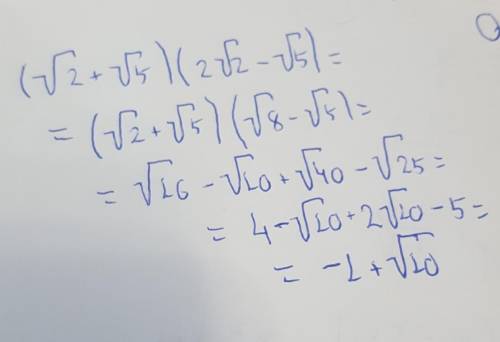 (√2 + √5)(2√2 - √5) =
= (√2 + √5)(√8 - √5) =
= √16 - √10 + √40 - √25 =
= 4 - √10 + 2√10 - 5 =
= -1 + √10